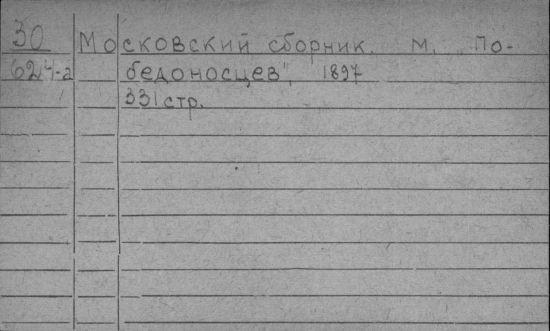 30 Московский сборник. М, „По-
624-а бедоносцев", 1897
331 стр.